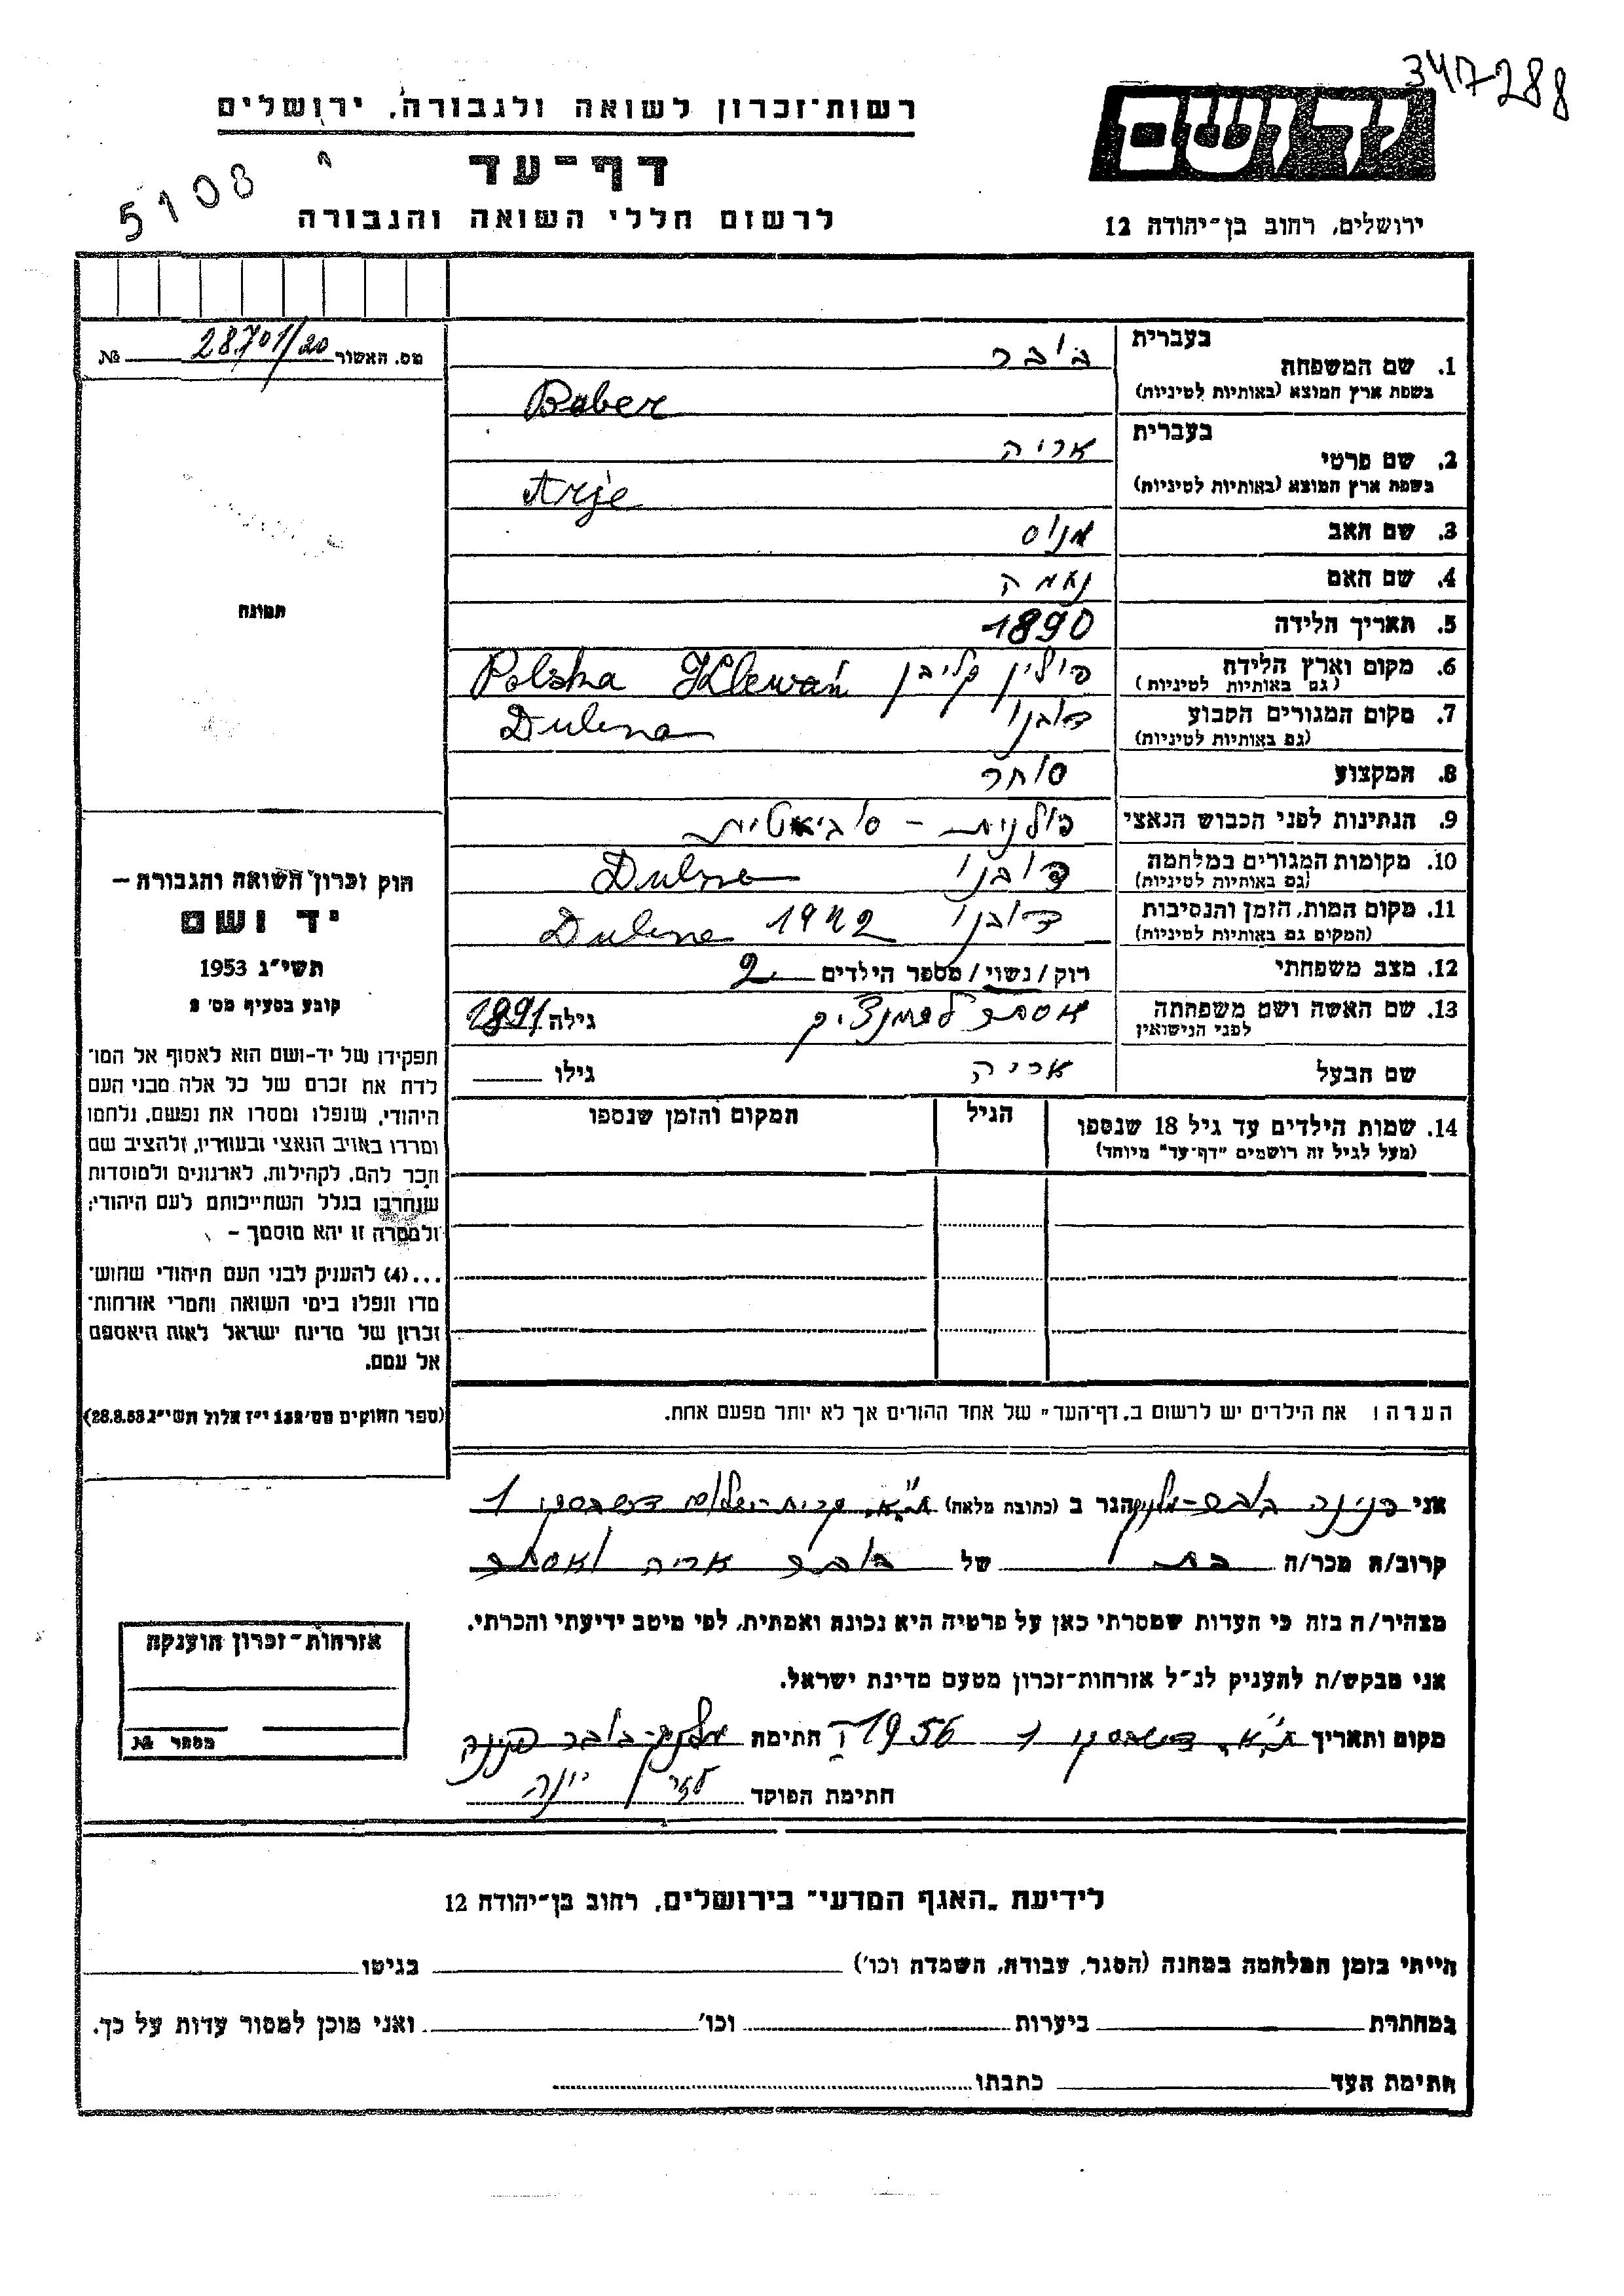 347288
יד ושם
רשות־זכרון לשואה ולגבורה, ירושלים
דף־עד
5108
לרשום חללי השואה והגבורה
ירושלים, רחוב בן־יהודה 12
מס. האשור 28701/20 №
בעברית
1. שם המשפחה בובר
בשפת ארץ המוצא (באותיות לטיניות) Bober
בעברית
2. שם פרטי אריה
בשפת ארץ המוצא (באותיות לטיניות) Arje
3. שם האב מניס
4. שם האם נעמה
5. תאריך הלידה 1890
6. מקום וארץ הלידה פולין קליבן Polska Klewań
(גם באותיות לטיניות)
7. מקום המגורים הקבוע דובנו Dubno
(גם באותיות לטיניות)
8. המקצוע סוחר
9. הנתינות לפני הכבוש הנאצי פולנית - סוביאטית
10. מקומות המגורים במלחמה דובנו Dubno
(גם באותיות לטיניות)
11. מקום המות, הזמן והנסיבות דובנו 1942 Dubno
(המקום גם באותיות לטיניות)
12. מצב משפחתי רוק/נשוי/מספר הילדים 2
13. שם האשה ושם משפחתה אסתר גילה 1891
לפני הנישואין
שם הבעל אריה גילו
14. שמות הילדים עד גיל 18 שנספו הגיל המקום והזמן שנספו
(מעל לגיל זה רושמים "דף־עד" מיוחד)
הערה: את הילדים יש לרשום ב"דף־העד" של אחד ההורים אך לא יותר מפעם אחת.
תמונה
חוק זכרון השואה והגבורה –
יד ושם
תשי"ג 1953
קובע בסעיף מס' 2
תפקידו של יד-ושם הוא לאסוף אל המו־
לדת את זכרם של כל אלה מבני העם
היהודי, שנפלו ומסרו את נפשם, נלחמו
ומרדו באויב הנאצי ובעוזריו, ולהציב שם
וזכר להם, לקהילות, לארגונים ולמוסדות
שנחרבו בגלל השתייכותם לעם היהודי;
ולמטרה זו יהא מוסמך –
...(4) להעניק לבני העם היהודי שהוש־
מדו ונפלו בימי השואה והמרי אזרחות־
זכרון של מדינת ישראל לאות היאספם
אל עמם.
(ספר החוקים מס' 132 י"ז אלול תשי"ג 28.8.53)
אני פנינה בובר-מלניק הגר ב (כתובת מלאה) ת"א, קרית-שלום 1
קרוב/ה מכר/ה בת של בובר אריה ואסתר
מצהיר/ה בזה כי העדות שמסרתי כאן על פרטיה היא נכונה ואמתית, לפי מיטב ידיעתי והכרתי.
אני מבקש/ת להעניק לנ"ל אזרחות־זכרון מטעם מדינת ישראל.
מקום ותאריך ת"א, 1 1956 חתימה מלניק-בובר פנינה
חתימת הפוקד יונה
אזרחות־זכרון הוענקה
מספר №
לידיעת "האגף המדעי" בירושלים, רחוב בן־יהודה 12
הייתי בזמן המלחמה במחנה (הסגר, עבודה, השמדה וכו') בגיטו
במחתרת ביערות וכו' ואני מוכן למסור עדות על כך.
חתימת העד כתבתו